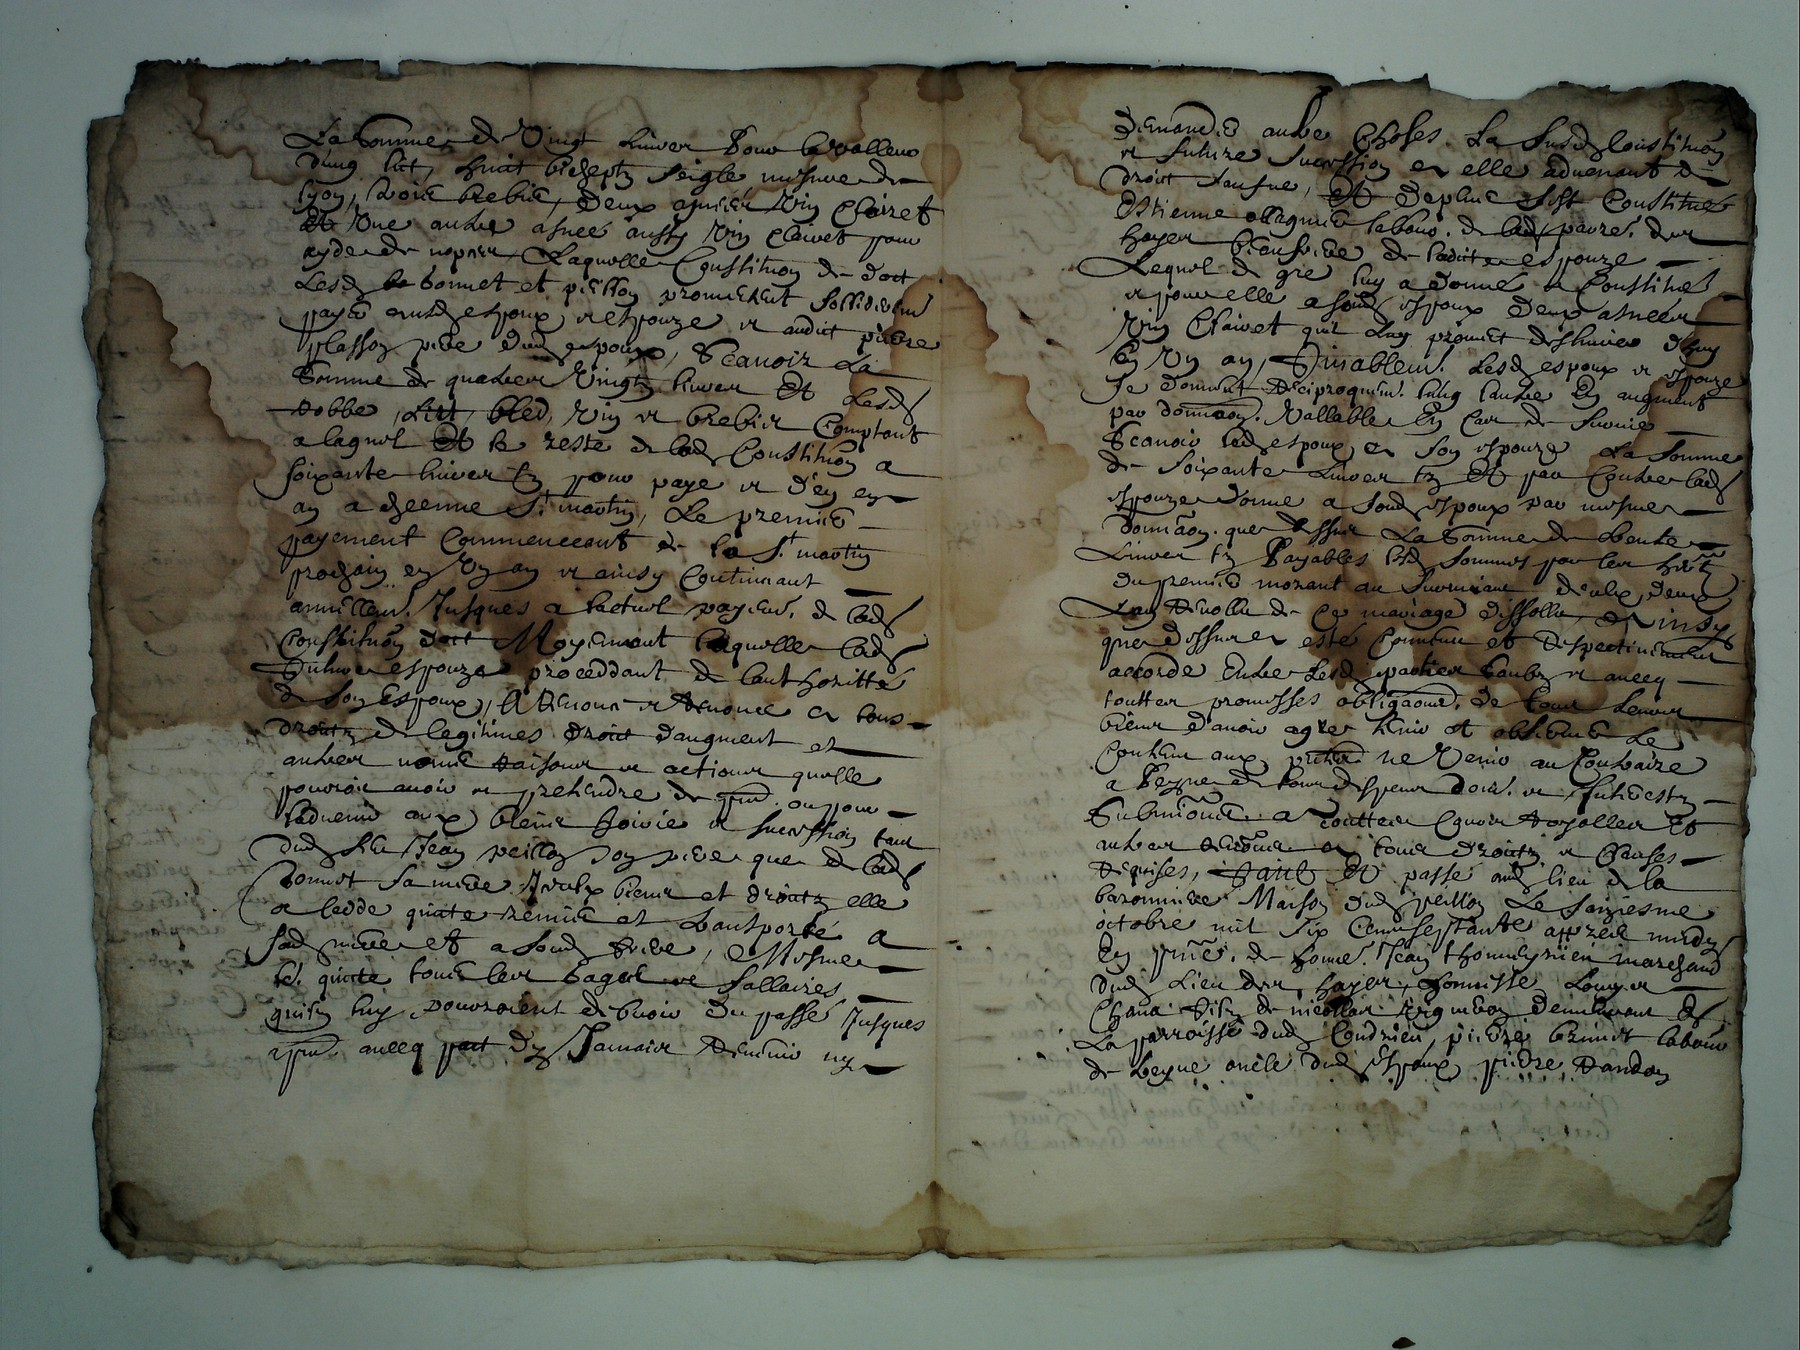 La Somme de Vingt livres Pour la valleur
dung lict, huict bicheptz seigle mesure de
lyon, trois brebis, deux asnées Vin clairet
et Une aultre asnée aussy Vin clairet pour
ayde de nopces, Laquelle Constituon de dott
Lesd bonnet et peillon promettent sollidairem
payer ausd espoux et espouze et audict pierre
plasson pere dud espoux, Scauoir La
Somme de quatre Vingtz livres Et Lesd
Robbe, Lict, bled, Vin et brebis Comptant
Et le reste de lad Constituon a
soixante livres tz pour paye et d'en en
an a chacune St martin, Le premier
payement Commenceant de la St martin
prochain en Un an et ainsy Continuant
annuellem. Jusques a lactuel payem. de lad
Constituon dott Moyennant laquelle lad
future espouze proceddant de lauthoritté
de son Espoux, A Renoncé et Renonce a tous
droictz de legitimes droict daugment et
aultres noms raisons et actions quelle
pourroit auoir et prethendre de pnt ou pour
laduenir aux biens hoirie et succession tant
dud feu Jean peillon son pere que de lad
bonnet sa mere, Desdx biens et droictz elle
a cedde quitte remis et transporté a
sad mere et a sond frere, Mesme
les quitte tous les gages et sallaires
quilz luy pouuroient debuoir du passé Jusques
a pnt auecq pact de Jamais Rien ny
demander aultre Choses. La susd Constituon
et future succession a elle aduenant de
droict saufue, Et deplus sest Constitué
Estienne allagnier labour. de lad parre. des
hayes beaufrere de ladicte espouze
Lequel de gré luy a donné et Constitué
et pour elle a sond espoux deux asnées
Vin Clairet quil luy promet deslivrer dhuy
En Un an, Finablem. Lesd espoux et espouze
Se donnent Reciproquem. lung laultre En augment
par donnaon. Vallable En Cas de suruie
Scauoir led espoux a son espouze La somme
de soixante Livres tz Et par Contre lad
espouze donne a sond espoux par mesme
donnaon. que dessus La Somme de trente
Livres tz Payables lesd sommes par les hers
du premier mourant au suruiuant d'eulx deux
Lan Reuollu de Ce mariage dissollu, Et ainsy
que dessus a esté Conuenu et Respectiuement
accordé Entre Lesd parties soubz et auecq
touttes promesses obligaons. de tous leurs
biens d'auoir agré tenir et obseruer Le
Contenu aux pntes ne Venir au Contraire
a Peyne de tous despens dom. et Interestz
Submissons a touttes Cours Royalles Et
aultres Renons a tous droictz et Clauses
Requises, Faict Et passé aud lieu de la
baronniere Maison dud peillon Le seiziesme
octobre mil six Cens septante appres midy
En pnce. de honne. Jean thomas marchand
dud Lieu des hayes, honneste Louys
Chana filz de nicollas Vigneron demeurant
La parroisse dud Condrieu, pierre brunet labour
de oncle dud Espoux, pierre